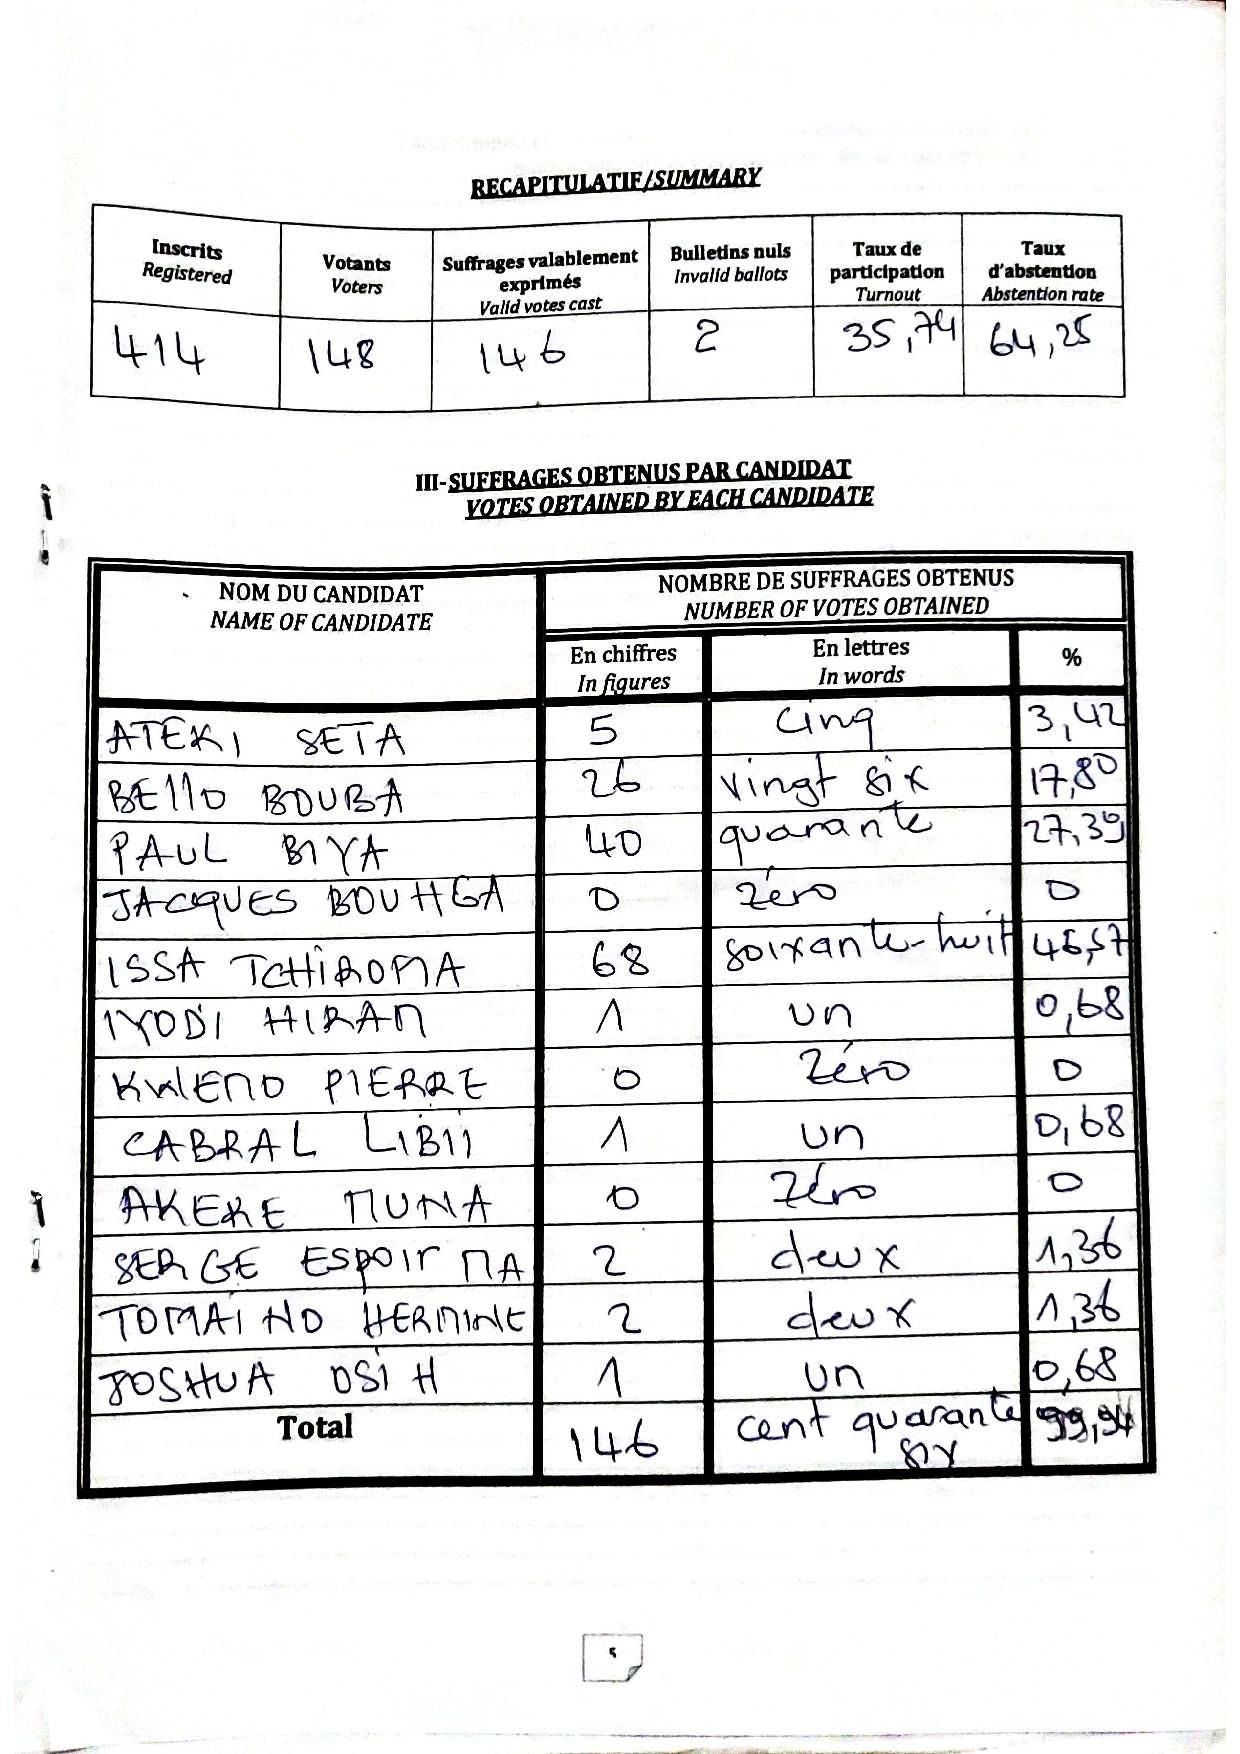 RECAPITULATIF/SUMMARY
Inscrits
Registered
Votants
Voters
Suffrages valablement
exprimés
Valid votes cast
Bulletins nuls
Invalid ballots
Taux de
participation
Turnout
Taux
d'abstention
Abstention rate
414 148 146 2 35,74 64,25
III-SUFFRAGES OBTENUS PAR CANDIDAT
VOTES OBTAINED BY EACH CANDIDATE
NOM DU CANDIDAT
NAME OF CANDIDATE
NOMBRE DE SUFFRAGES OBTENUS
NUMBER OF VOTES OBTAINED
En chiffres
In figures
En lettres
In words
%
ATEKI SETA 5 cinq 3,42
BEllO BOUBA 26 vingt six 17,80
PAUL BIYA 40 quarante 27,39
JACQUES BOUHGA 0 zéro 0
ISSA TCHIROMA 68 soixante-huit 46,57
IYODI HIRAM 1 un 0,68
KWEMO PIERRE 0 Zéro 0
CABRAL LIBII 1 un 0,68
AKERE MUNA 0 Zéro 0
SERGE ESPOIR MA 2 deux 1,36
TOMAÏNO HERMINE 2 deux 1,36
JOSHUA OSIH 1 un 0,68
Total 146 cent quarante six 99,94
5